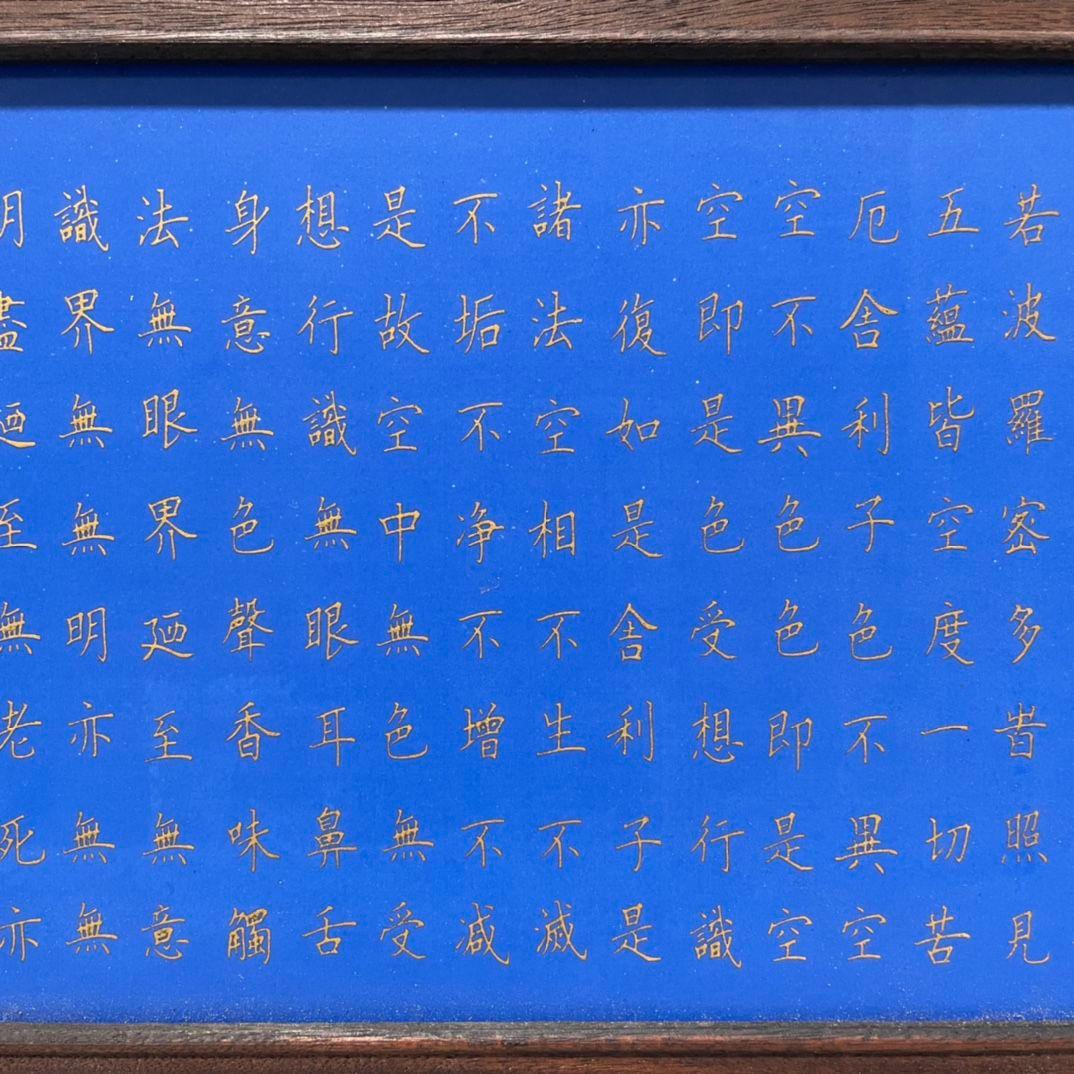 若波羅密多旹照見
五蘊皆空度一切苦
厄舍利子色不異空
空不異色色即是空
空即是色受想行識
亦復如是舍利子是
諸法空相不生不滅
不垢不净不增不減
是故空中無色無受
想行識無眼耳鼻舌
身意無色聲香味觸
法無眼界廼至無意
識界無無明亦無無
明盡廼至無老死亦